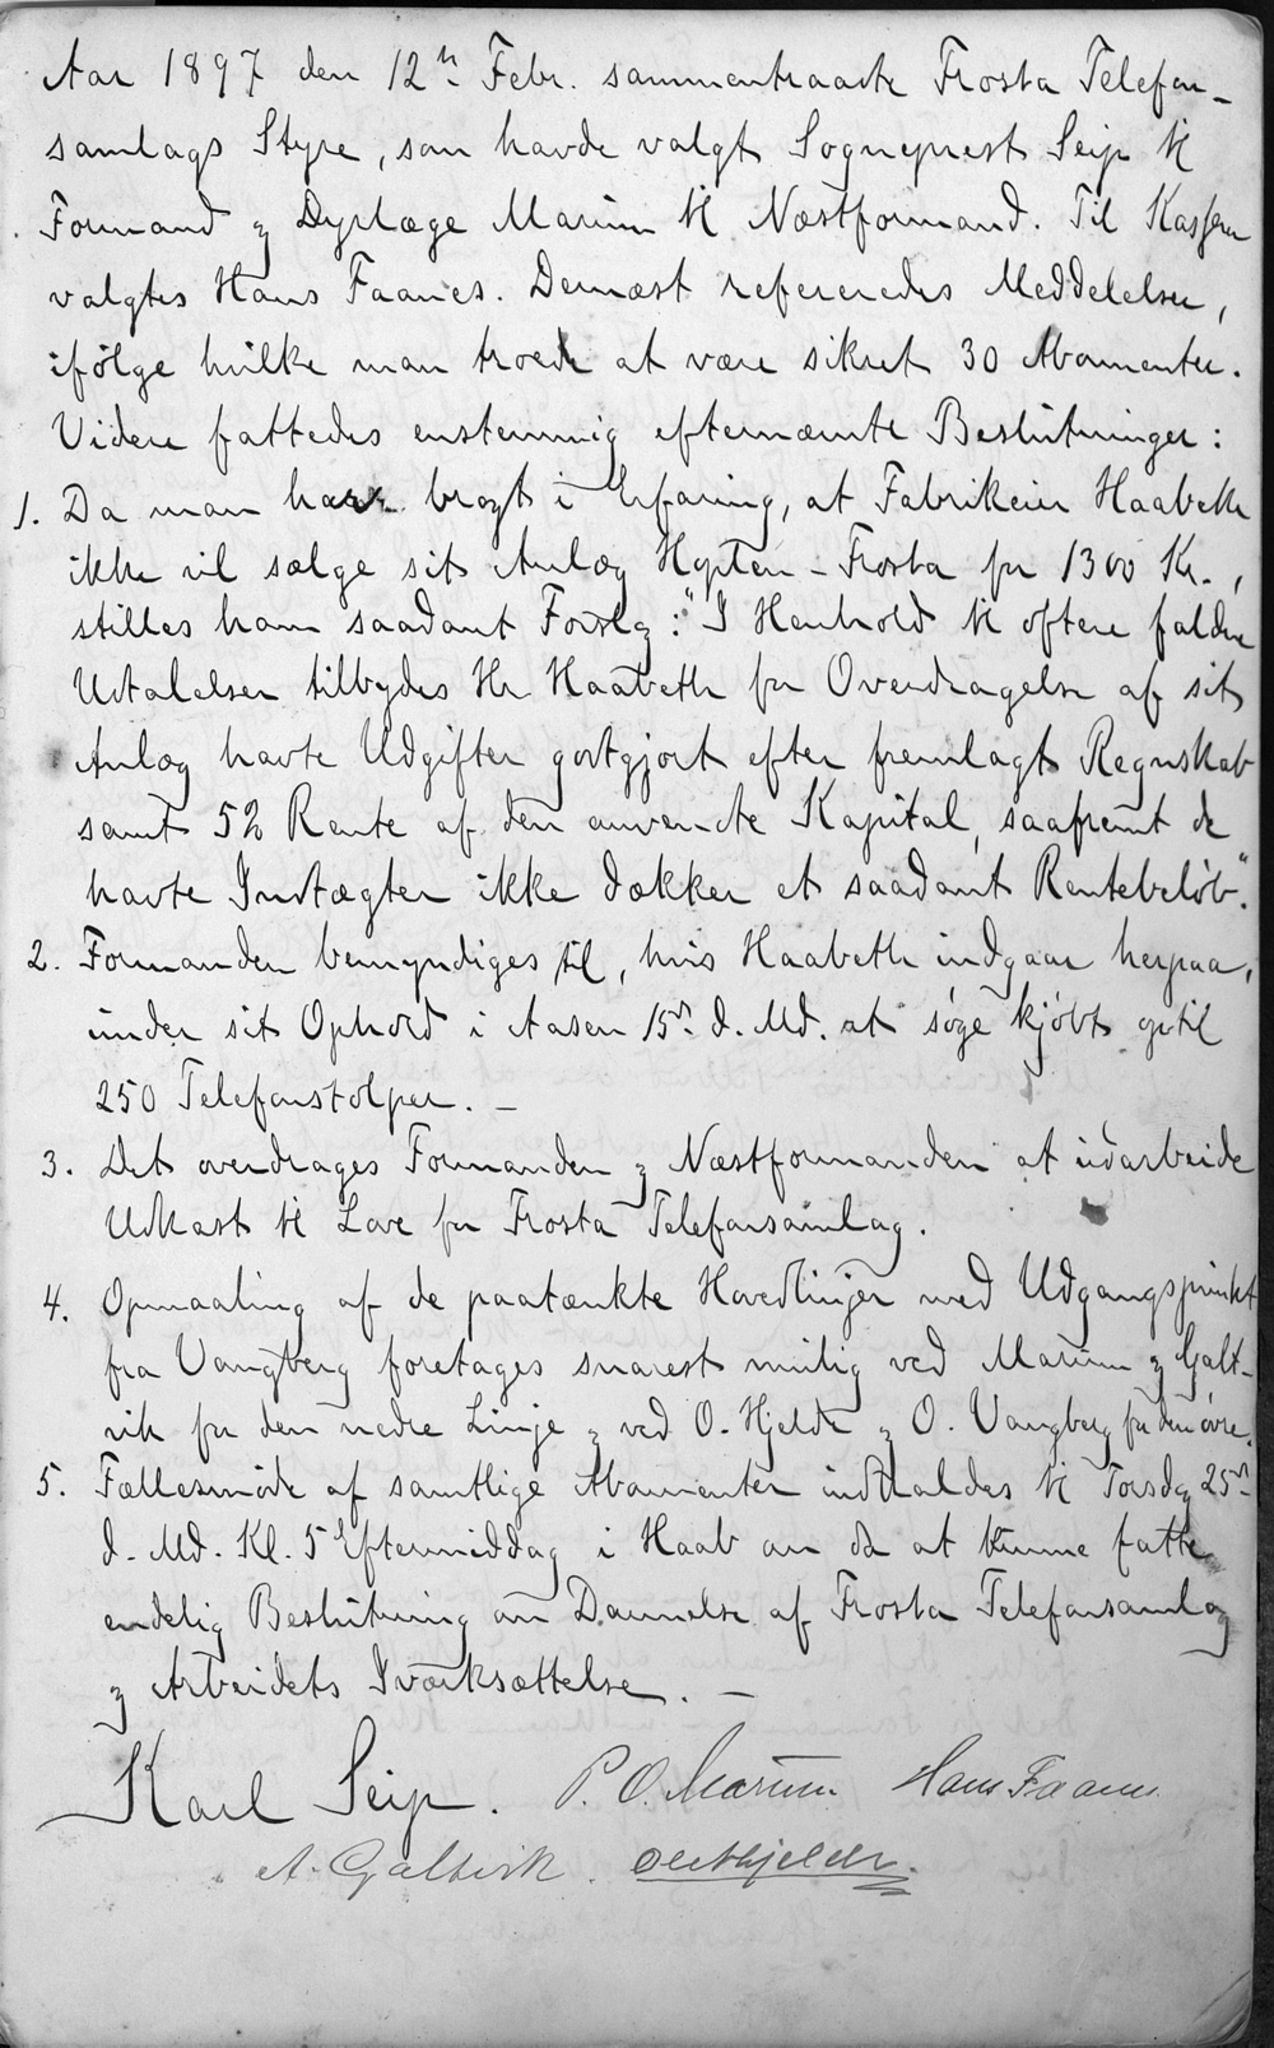 Aar 1897 den 12te Febr. sammentraadte Frosta Telefon-
samlags Styre, som havde valgt Sogneprest Seip til
Formand og Dyrlæge Marum til Næstformand. Til Kasserer
valgtes Hans Faanes. Dernæst refereredes Meddelelser,
ifølge hvilke man troede at være sikret 30 Abonnenter.
Videre fattedes enstemmig efternævnte Beslutninger:
1. Da man har bragt i Erfaring, at Fabrikeier Haabeth
ikke vil sælge sit Anlæg Hopten-Frosta for 1300 Kr.,
stilles ham saadant Forslag: "I Henhold til oftere faldne
Udtalelser tilbydes Hr Haabeth for Overdragelse af sit
Anlæg havte Udgifter godtgjort efter fremlagt Regnskab
samt 5% Rente af den anvendte Kapital, saafremt de
havte Indtægter ikke dækker et saadant Rentebeløb."
2. Formanden bemyndiges til, hvis Haabeth indgaar herpaa,
under sit Ophold i Aasen 15de d. Md. at søge kjøbt optil
250 Telefonstolper. -
3. Det overdrages Formanden og Næstformanden at udarbeide
Udkast til Love for Frosta Telefonsamlag.
4. Opmaaling af de paatænkte Hovedlinjer med Udgangspunkt
fra Vangberg foretages snarest mulig ved Marum og Galt-
vik for den nedre Linje og ved O. Hjelde og O. Vangberg for den øvre.
5. Fællesmøde af samtlige Abonnenter indkaldes til Torsdag 25de
d. Md. Kl. 5 Eftermiddag i Haab om da at kunne fatte
endelig Beslutning om Dannelse af Frosta Telefonsamlag
og Arbeidets Iværksættelse. -
Karl Seip. P. O. Marum Hans Faanes.
A. Galtvik. Ole Hjelde.